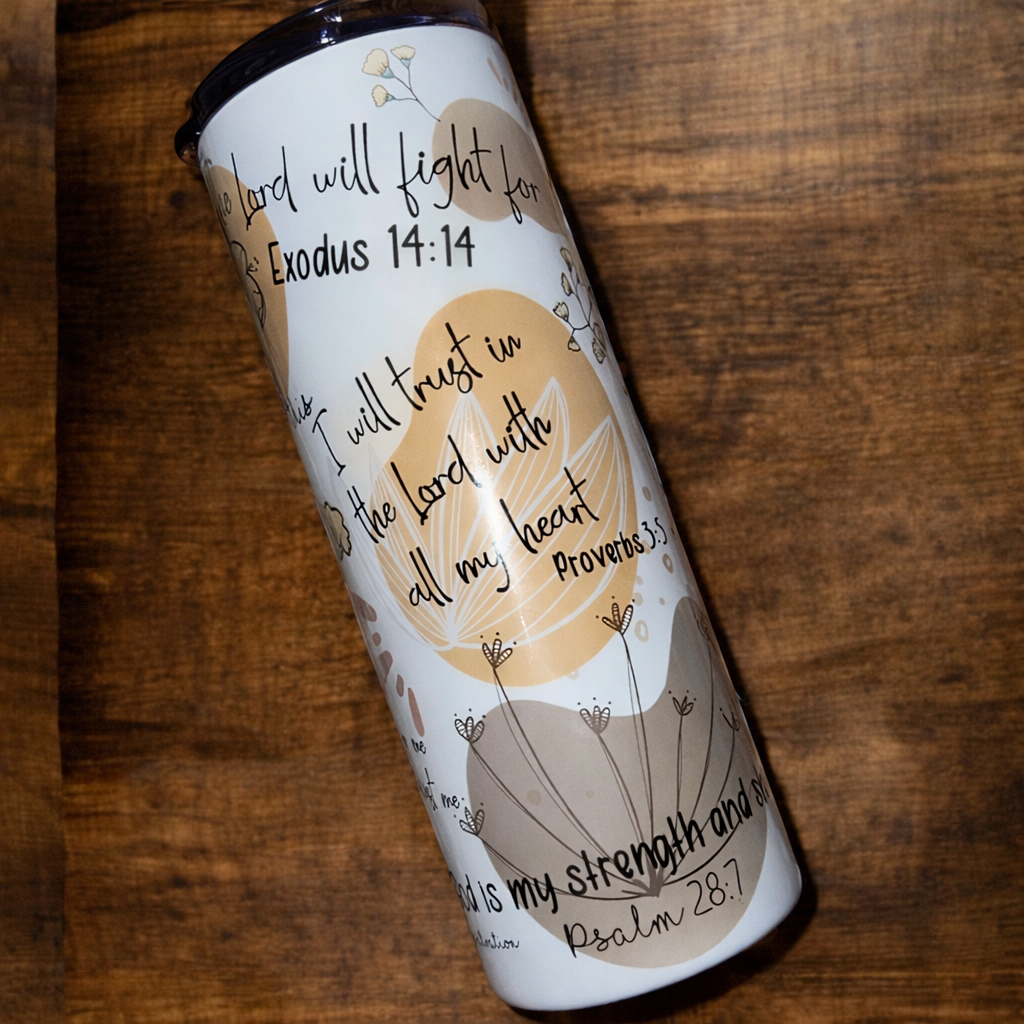 Lord will fight for
Exodus 14:14
I will trust in
the Lord with
all my heart
Proverbs 3:5
is
me
me
is my strength and
Psalm 28:7